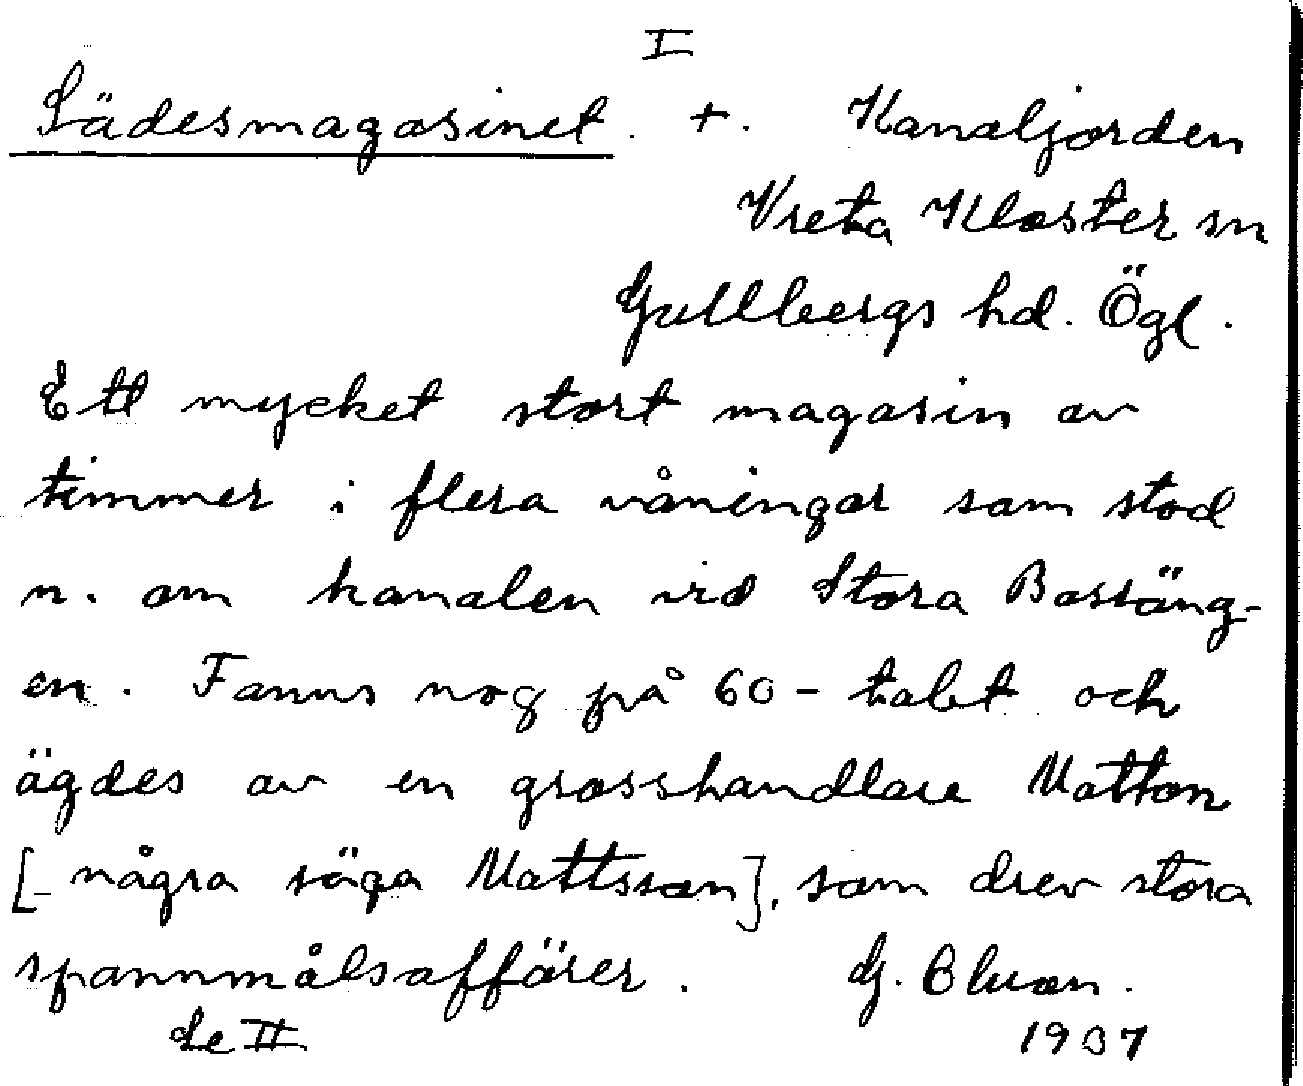 I
Sädesmagasinet. +. Kanaljorden
Vreta Kloster sn
Gullbergs hd. Ögl.
Ett mycket stort magasin av
timmer i flera våningar som stod
n. om kanalen vid Stora Bassäng-
en. Fanns nog på 60-talet och
ägdes av en grosshandlare Matton
[några säga Mattsson], som drev stora
spannmålsaffärer. G.
Se II 1937